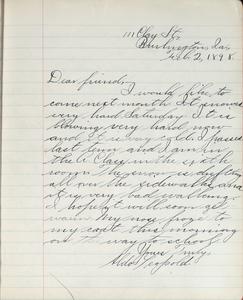 111 Clay St.
Burlington, Ia.
Feb. 2, 1898.
Dear friend,
I would like to
come next month. It snowed
very hard Saturday. It is
blowing very hard now
and it is very cold. I passed
last term and I am in
the A Class in the sixth
room. The snow is drifting
all over the sidewalks and
it is very bad walking.
I hope it will soon get
warm. My nose froze to
my coat this morning
on the way to school.
Yours truly,
Aldo Leopold